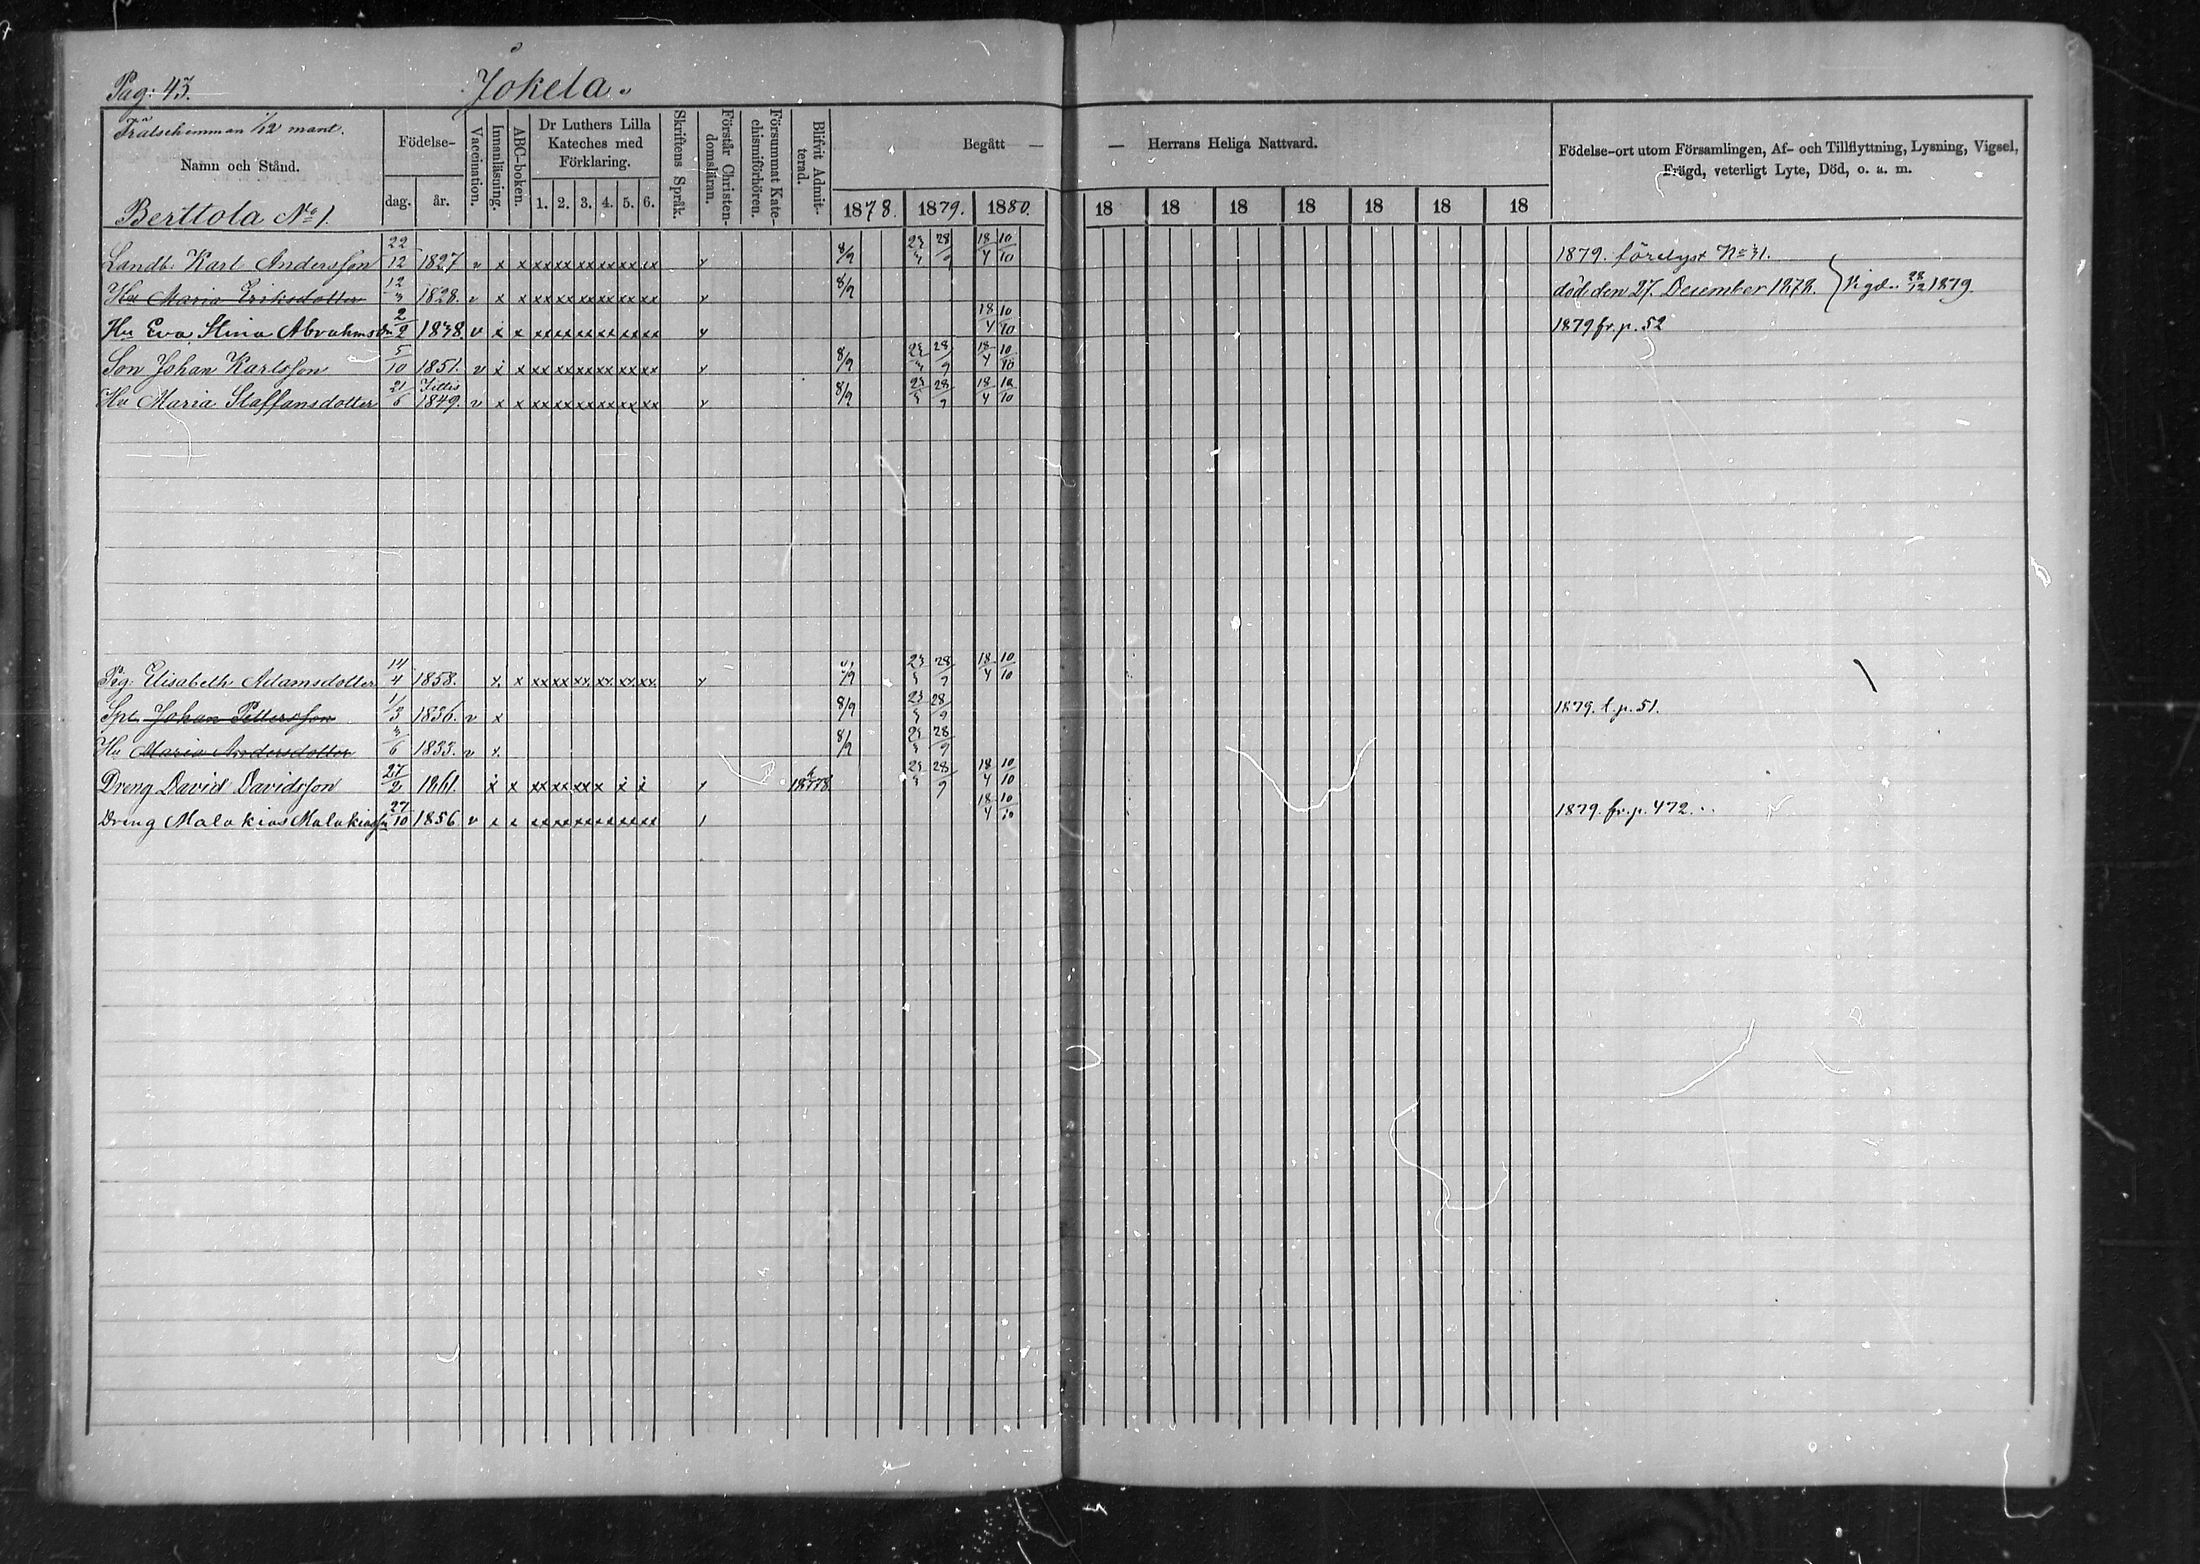 Pag: 43.
Jokela.
Frälsehemman 1/12 mant.
Namn och Stånd.
Berttola No 1.
Födelse-
dag. år.
Vaccination.
Innanläsning.
ABC-boken.
Dr Luthers Lilla
Kateches med
Förklaring.
1. 2. 3. 4. 5. 6.
Skriftens Språk.
Förstår Christen-
domsläran.
Försummat Kate-
chismiförhören.
Blifvit Admit-
terad.
Begått — — Herrans Heliga Nattvard.
1878. 1879. 1880. 18 18 18 18 18 18 18
Födelse-ort utom Församlingen, Af- och Tillflyttning, Lysning, Vigsel,
Frägd, veterligt Lyte, Död, o. a. m.
Landb. Karl Andersson 22/12 1827 v x x xx xx xx xx xx xx 8/9 28/9 18/4 10/10 1879. förelyst No 31.
Hu Maria Eriksdotter 12/3 1828. v x x xx xx xx xx xx xx 8/9 död den 27. Desember 1878. } Vigd. 28/12 1879.
Hu Eva Stina Abrahmsdr 2/2 1838. v x x xx xx xx xx xx xx 18/4 10/10 1879 fr. p. 52
Son Johan Karlsson 5/10 1851. v x x xx xx xx xx xx xx 8/9 28/9 18/4 10/10
Hu Maria Staffansdotter 21/6 1849. v x x xx xx xx xx xx xx 8/9 28/9 18/4 10/10
Pig. Elisabeth Adamsdotter 14/4 1858. x x xx xx xx xx xx xx 28/9 18/4 10/10
Spl. Johan Pettersson 1/3 1836. v x 8/9 28/9 1879. t. p. 51.
Hu Maria Andersdotter 3/6 1833. v x 8/9 28/9
Dreng David Davidsson 27/2 1861. x x xx xx xx x x x 1878 28/9 18/4 10/10
Dreng Malakias Malakiasson 27/10 1856 v x x xx xx xx xx xx xx 18/4 10/10 1879. fr. p. 472.